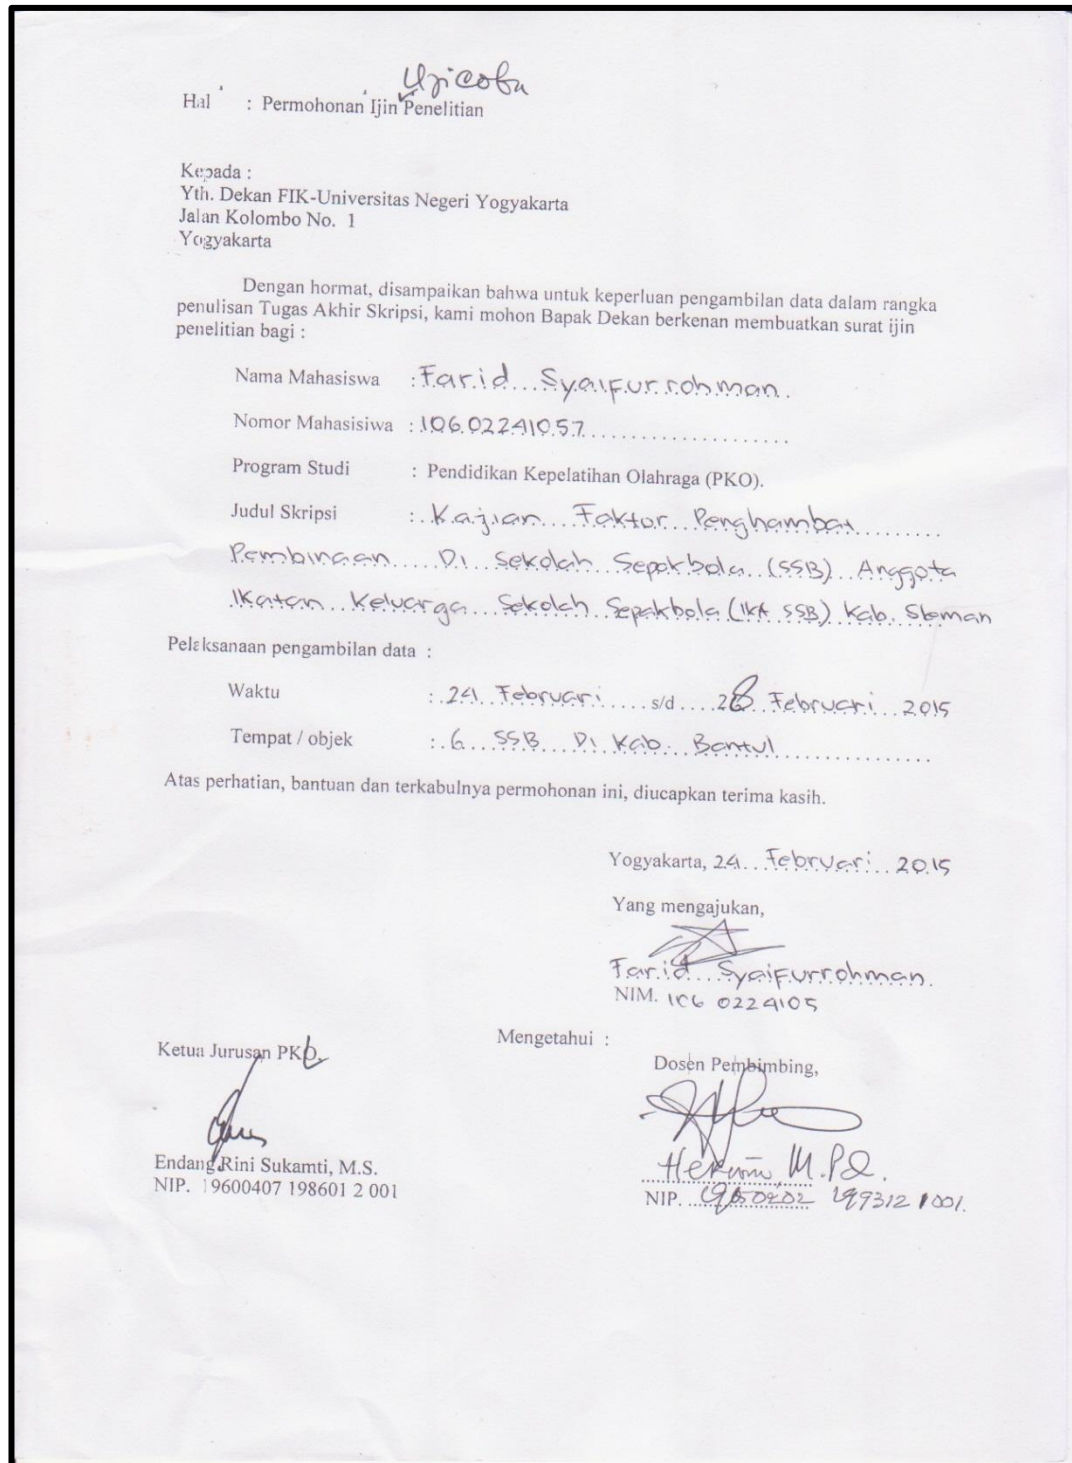 Ujicoba
Hal : Permohonan Ijin Penelitian
Kepada :
Yth. Dekan FIK-Universitas Negeri Yogyakarta
Jalan Kolombo No. 1
Yogyakarta
Dengan hormat, disampaikan bahwa untuk keperluan pengambilan data dalam rangka
penulisan Tugas Akhir Skripsi, kami mohon Bapak Dekan berkenan membuatkan surat ijin
penelitian bagi :
Nama Mahasiswa : Farid Syaifurrohman.
Nomor Mahasisiwa : 10602241057
Program Studi : Pendidikan Kepelatihan Olahraga (PKO).
Judul Skripsi : Kajian Faktor Penghambat
Pembinaan Di Sekolah Sepakbola (SSB) Anggota
Ikatan Keluarga Sekolah Sepakbola (IKA SSB) Kab. Sleman
Pelaksanaan pengambilan data :
Waktu : 24 Februari s/d 28 Februari 2015
Tempat / objek : 6 SSB Di Kab. Bantul
Atas perhatian, bantuan dan terkabulnya permohonan ini, diucapkan terima kasih.
Yogyakarta, 24 Februari 2015
Yang mengajukan,
Farid Syaifurrohman.
NIM. 106 0224105
Mengetahui :
Ketua Jurusan PKO.
Dosen Pembimbing,
Endang Rini Sukamti, M.S.
NIP. 19600407 198601 2 001
M.Pd.
NIP. 199312 1 001.